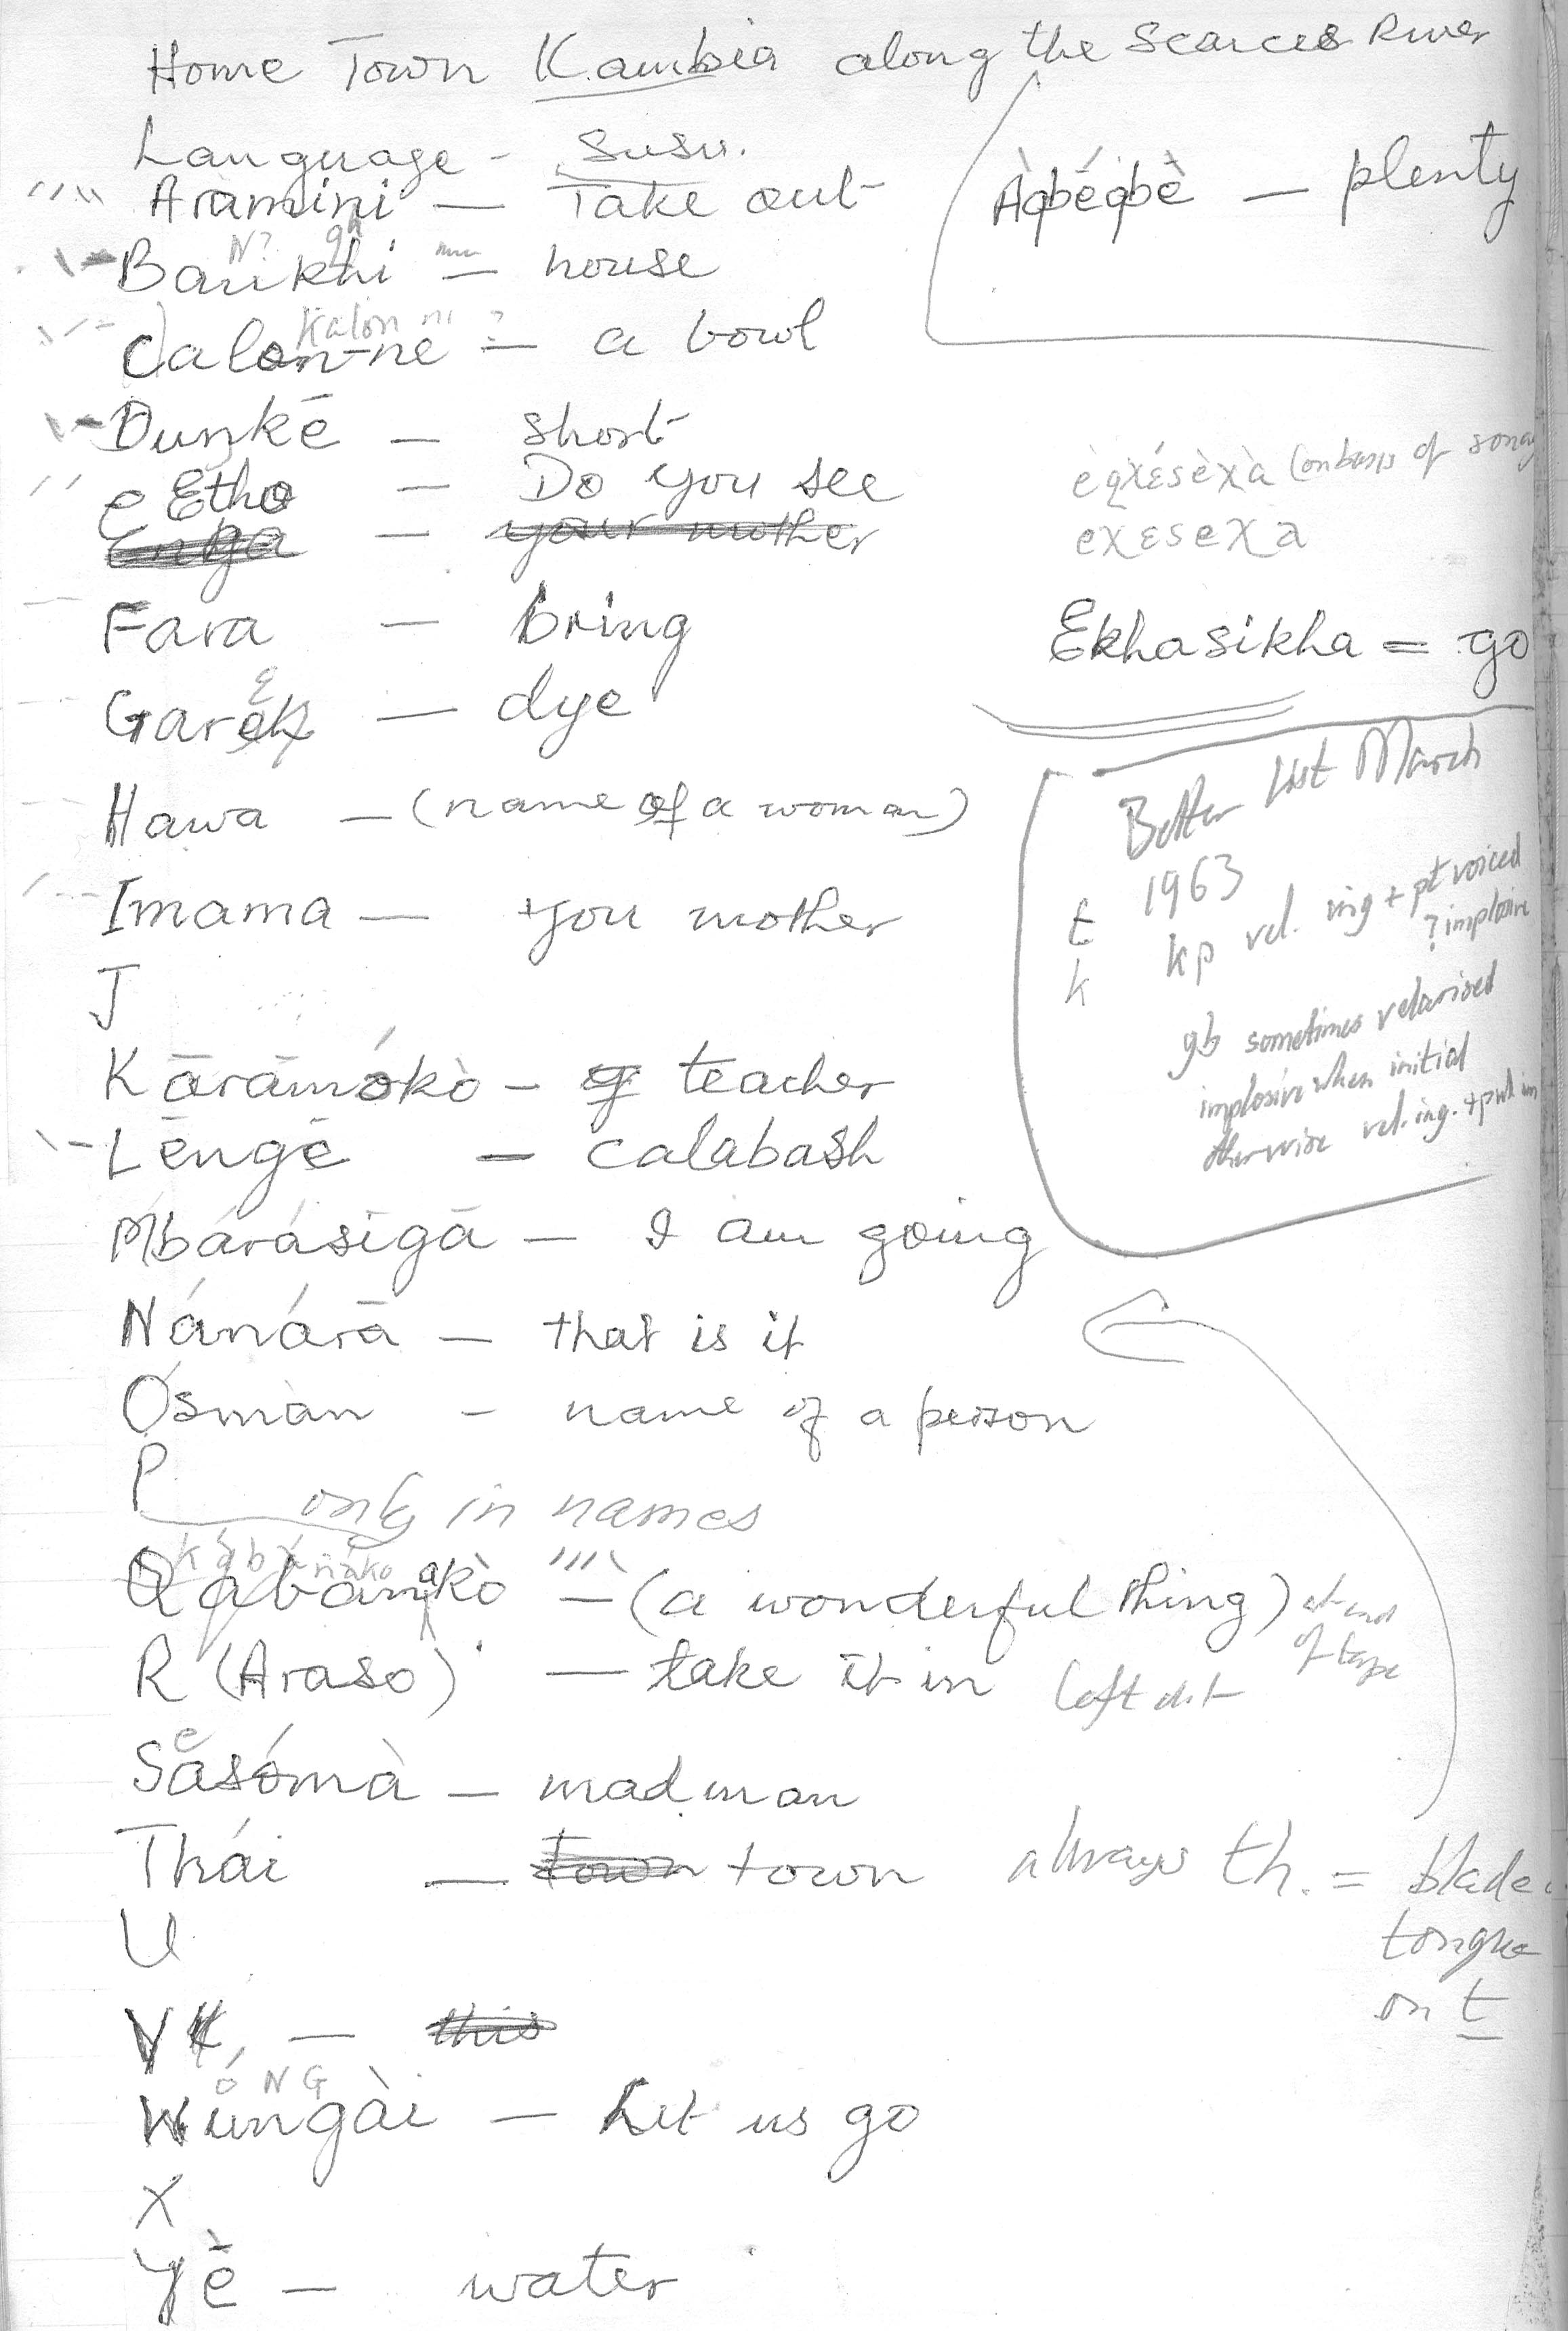 Home Town Kambia along the Scarces River
Language - Susu.
Aràmini — Take out
Baukhi — house
N? gh
Calon-ne — a bowl
Kalon ni ?
Dunkē — short
e Etho — Do you see
Enga — your mother
Fara — bring
Garek — dye
ɛ
Hawa — (name of a woman)
Imama — you mother
J
Kārāmókò — teacher
Lēngē — calabash
Mbárásigā — I am going
Nánárā — that is it
Ósmàn — name of a person
P
only in names
Qábamakò — (a wonderful thing) at end of tape
R (Araso) — take it in left out
Sāsómà — mad man
e
Thái — town town always th. = blade
tongue
on t
U
V — this
ó N G
Wúngài — Let us go
X
Yē — water
Àgbégbè — plenty
(on basis of song
exɛsexa
Ekhasikha = go
Better list March
1963
t
k
kp vel. ing + pt voiced
? implosive
gb sometimes velarised
implosive when initial
otherwise vel. ing. +